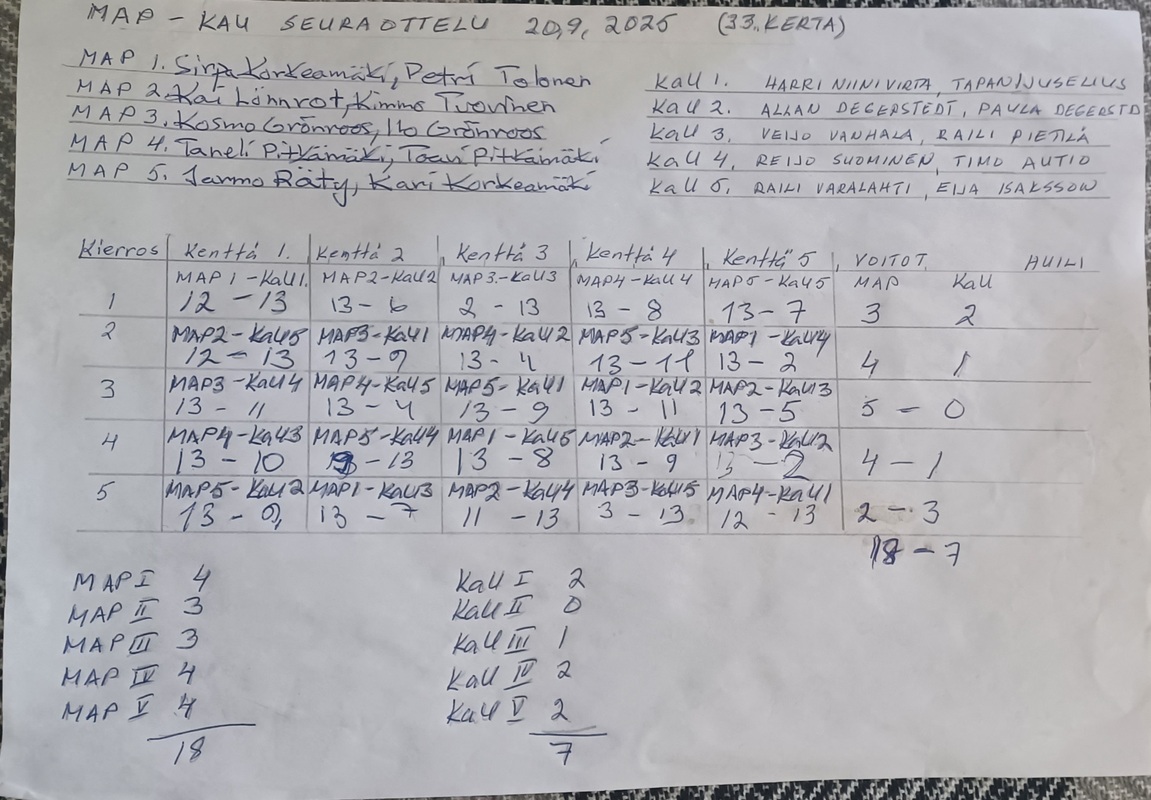 MAP - KAU SEURAOTTELU 20,9, 2025 (33. KERTA)
MAP 1. Sirpa Korkeamäki, Petri Tolonen
MAP 2. Kai Lönnrot, Kimmo Tuovinen
MAP 3. Kosmo Grönroos, Ilo Grönroos
MAP 4. Taneli Pitkämäki, Toavi Pitkämäki
MAP 5. Jarmo Räty, Kari Korkeamäki
KaU 1. HARRI NIINIVIRTA, TAPANI JUSELIUS
KaU 2. ALLAN DEGERSTEDT, PAULA DEGERSTD
KaU 3. VEIJO VANHALA, RAILI PIETILÄ
KaU 4, REIJO SUOMINEN, TIMO AUTIO
KaU 5, RAILI VARALAHTI, EIJA ISAKSSON
Kierros Kenttä 1. Kenttä 2 Kenttä 3 Kenttä 4 Kenttä 5 VOITOT HUILI
MAP 1-KaU1. MAP2-KaU2 MAP3-KaU3 MAP4-KaU4 MAP5-KaU5 MAP KaU
1 12-13 13-6 2-13 13-8 13-7 3 2
2 MAP2-KaU5 MAP3-KaU1 MAP4-KaU2 MAP5-KaU3 MAP1-KaU4
12-13 13-9 13-4 13-11 13-2 4 1
3 MAP3-KaU4 MAP4-KaU5 MAP5-KaU1 MAP1-KaU2 MAP2-KaU3
13-11 13-4 13-9 13-11 13-5 5-0
4 MAP4-KaU3 MAP5-KaU4 MAP1-KaU5 MAP2-KaU1 MAP3-KaU2
13-10 9-13 13-8 13-9 13-2 4-1
5 MAP5-KaU2 MAP1-KaU3 MAP2-KaU4 MAP3-KaU5 MAP4-KaU1
13-9, 13-7 11-13 3-13 12-13 2-3
18-7
MAP I 4
MAP II 3
MAP III 3
MAP IV 4
MAP V 4
18
KaU I 2
KaU II 0
KaU III 1
KaU IV 2
KaU V 2
7